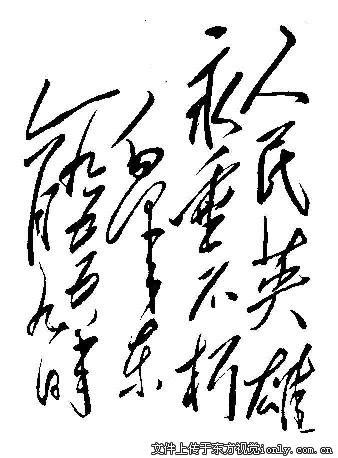 人民英雄
永垂不朽
毛泽东
一九五五年
六月九日
文件上传于东方视觉ionly.com.cn